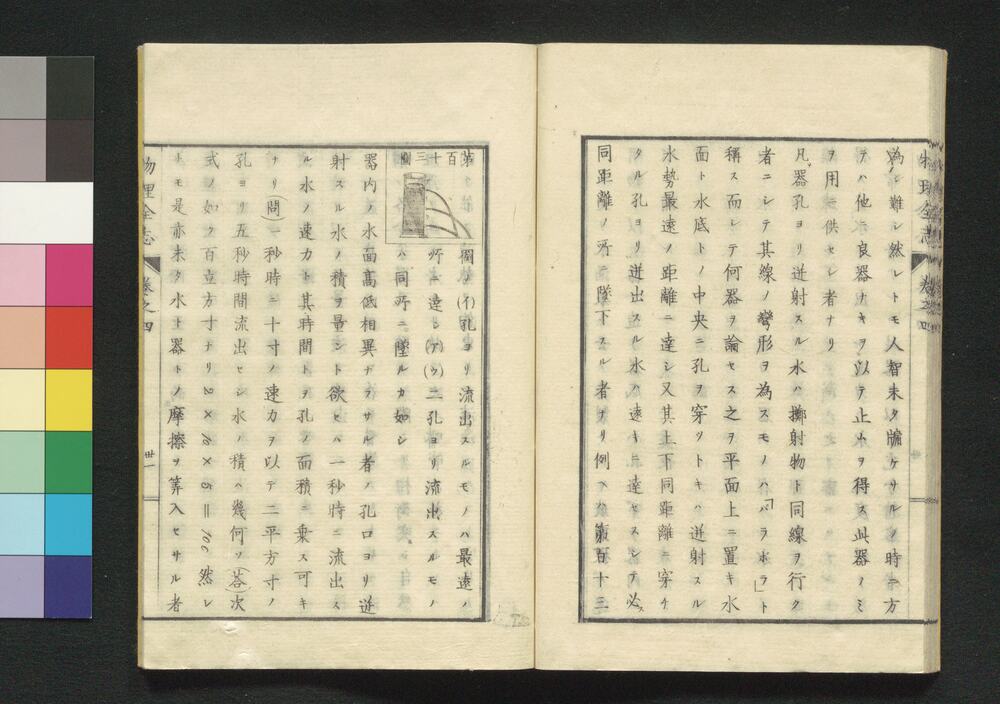 物理全志 卷之四
為シ難シ然レトモ人智未タ牖ケサルノ時ニ方
テハ他ニ良器ナキヲ以テ止ムヲ得ス此器ノミ
ヲ用ニ供セシ者ナリ
凡器孔ヨリ迸射スル水ハ擲射物ト同線ヲ行ク
者ニシテ其線ノ彎形ヲ為スモノハ「パラボラ」ト
稱ス而シテ何器ヲ論セス之ヲ平面上ニ置キ水
面ト水底トノ中央ニ孔ヲ穿ツトキハ迸射スル
水勢最遠ノ距離ニ達シ又其上下同距離ニ穿チ
タル孔ヨリ迸出スル水ハ遠キニ達セスシテ必
同距離ノ所ニ墜下スル者ナリ例ヘハ第百十三
第百
十三
圖
圖ノ(イ)孔ヨリ流出スルモノハ最遠ノ
所ニ達シ(ア)(ウ)二孔ヨリ流出スルモノ
ハ同所ニ墜ルカ如シ
器内ノ水面高低相異ナラサル者ノ孔口ヨリ迸
射スル水ノ積ヲ量ント欲セハ一秒時ニ流出ス
ル水ノ速力ト其時間トヲ孔ノ面積ニ乗ス可キ
ナリ(問)一秒時ニ十寸ノ速力ヲ以テ二平方寸ノ
孔ヨリ五秒時間流出セシ水ノ積ハ幾何ソ(答)次
式ノ如ク百立方寸ナリ2×10×5=100然レ
トモ是亦未タ水ト器トノ摩擦ヲ筭入セサル者
物理全志 卷之四 廿一